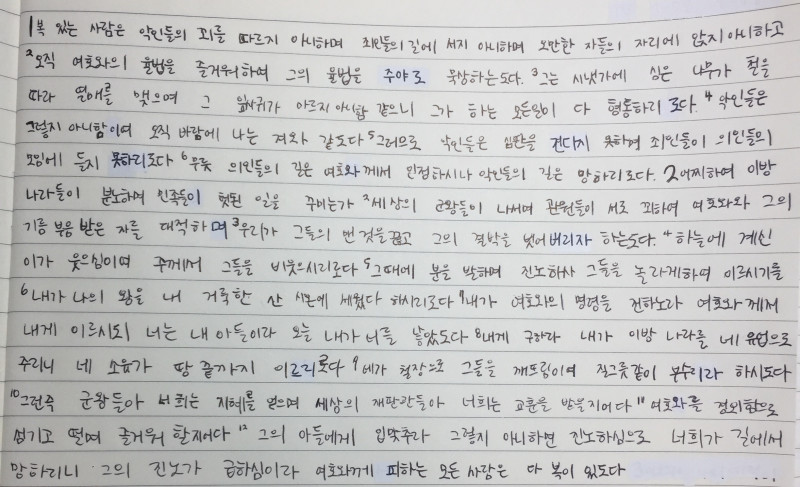 1복 있는 사람은 악인들의 꾀를 따르지 아니하며 죄인들의 길에 서지 아니하며 오만한 자들의 자리에 앉지 아니하고
2오직 여호와의 율법을 즐거워하여 그의 율법을 주야로 묵상하는도다. 3그는 시냇가에 심은 나무가 철을
따라 열매를 맺으며 그 잎사귀가 마르지 아니함 같으니 그가 하는 모든일이 다 형통하리로다. 4악인들은
그렇지 아니함이여 오직 바람에 나는 겨와 같도다 5그러므로 악인들은 심판을 견디지 못하며 죄인들이 의인들의
모임에 들지 못하리로다 6무릇 의인들의 길은 여호와께서 인정하시나 악인들의 길은 망하리로다. 2어찌하여 이방
나라들이 분노하며 민족들이 헛된 일을 꾸미는가 2세상의 군왕들이 나서며 관원들이 서로 꾀하여 여호와와 그의
기름 부음 받은 자를 대적하며 3우리가 그들의 맨 것을 끊고 그의 결박을 벗어버리자 하는도다. 4하늘에 계신
이가 웃으심이여 주께서 그들을 비웃으시리로다 5그때에 분을 발하며 진노하사 그들을 놀라게하여 이르시기를
6내가 나의 왕을 내 거룩한 산 시온에 세웠다 하시리로다 7내가 여호와의 명령을 전하노라 여호와께서
내게 이르시되 너는 내 아들이라 오늘 내가 너를 낳았도다 8내게 구하라 내가 이방 나라를 네 유업으로
주리니 네 소유가 땅 끝까지 이르리로다 9네가 철장으로 그들을 깨뜨림이여 질그릇같이 부수리라 하시도다
10그런즉 군왕들아 너희는 지혜를 얻으며 세상의 재판관들아 너희는 교훈을 받을지어다 11여호와를 경외함으로
섬기고 떨며 즐거워 할지어다 12 그의 아들에게 입맞추라 그렇지 아니하면 진노하심으로 너희가 길에서
망하리니 그의 진노가 급하심이라 여호와께 피하는 모든 사람은 다 복이 있도다